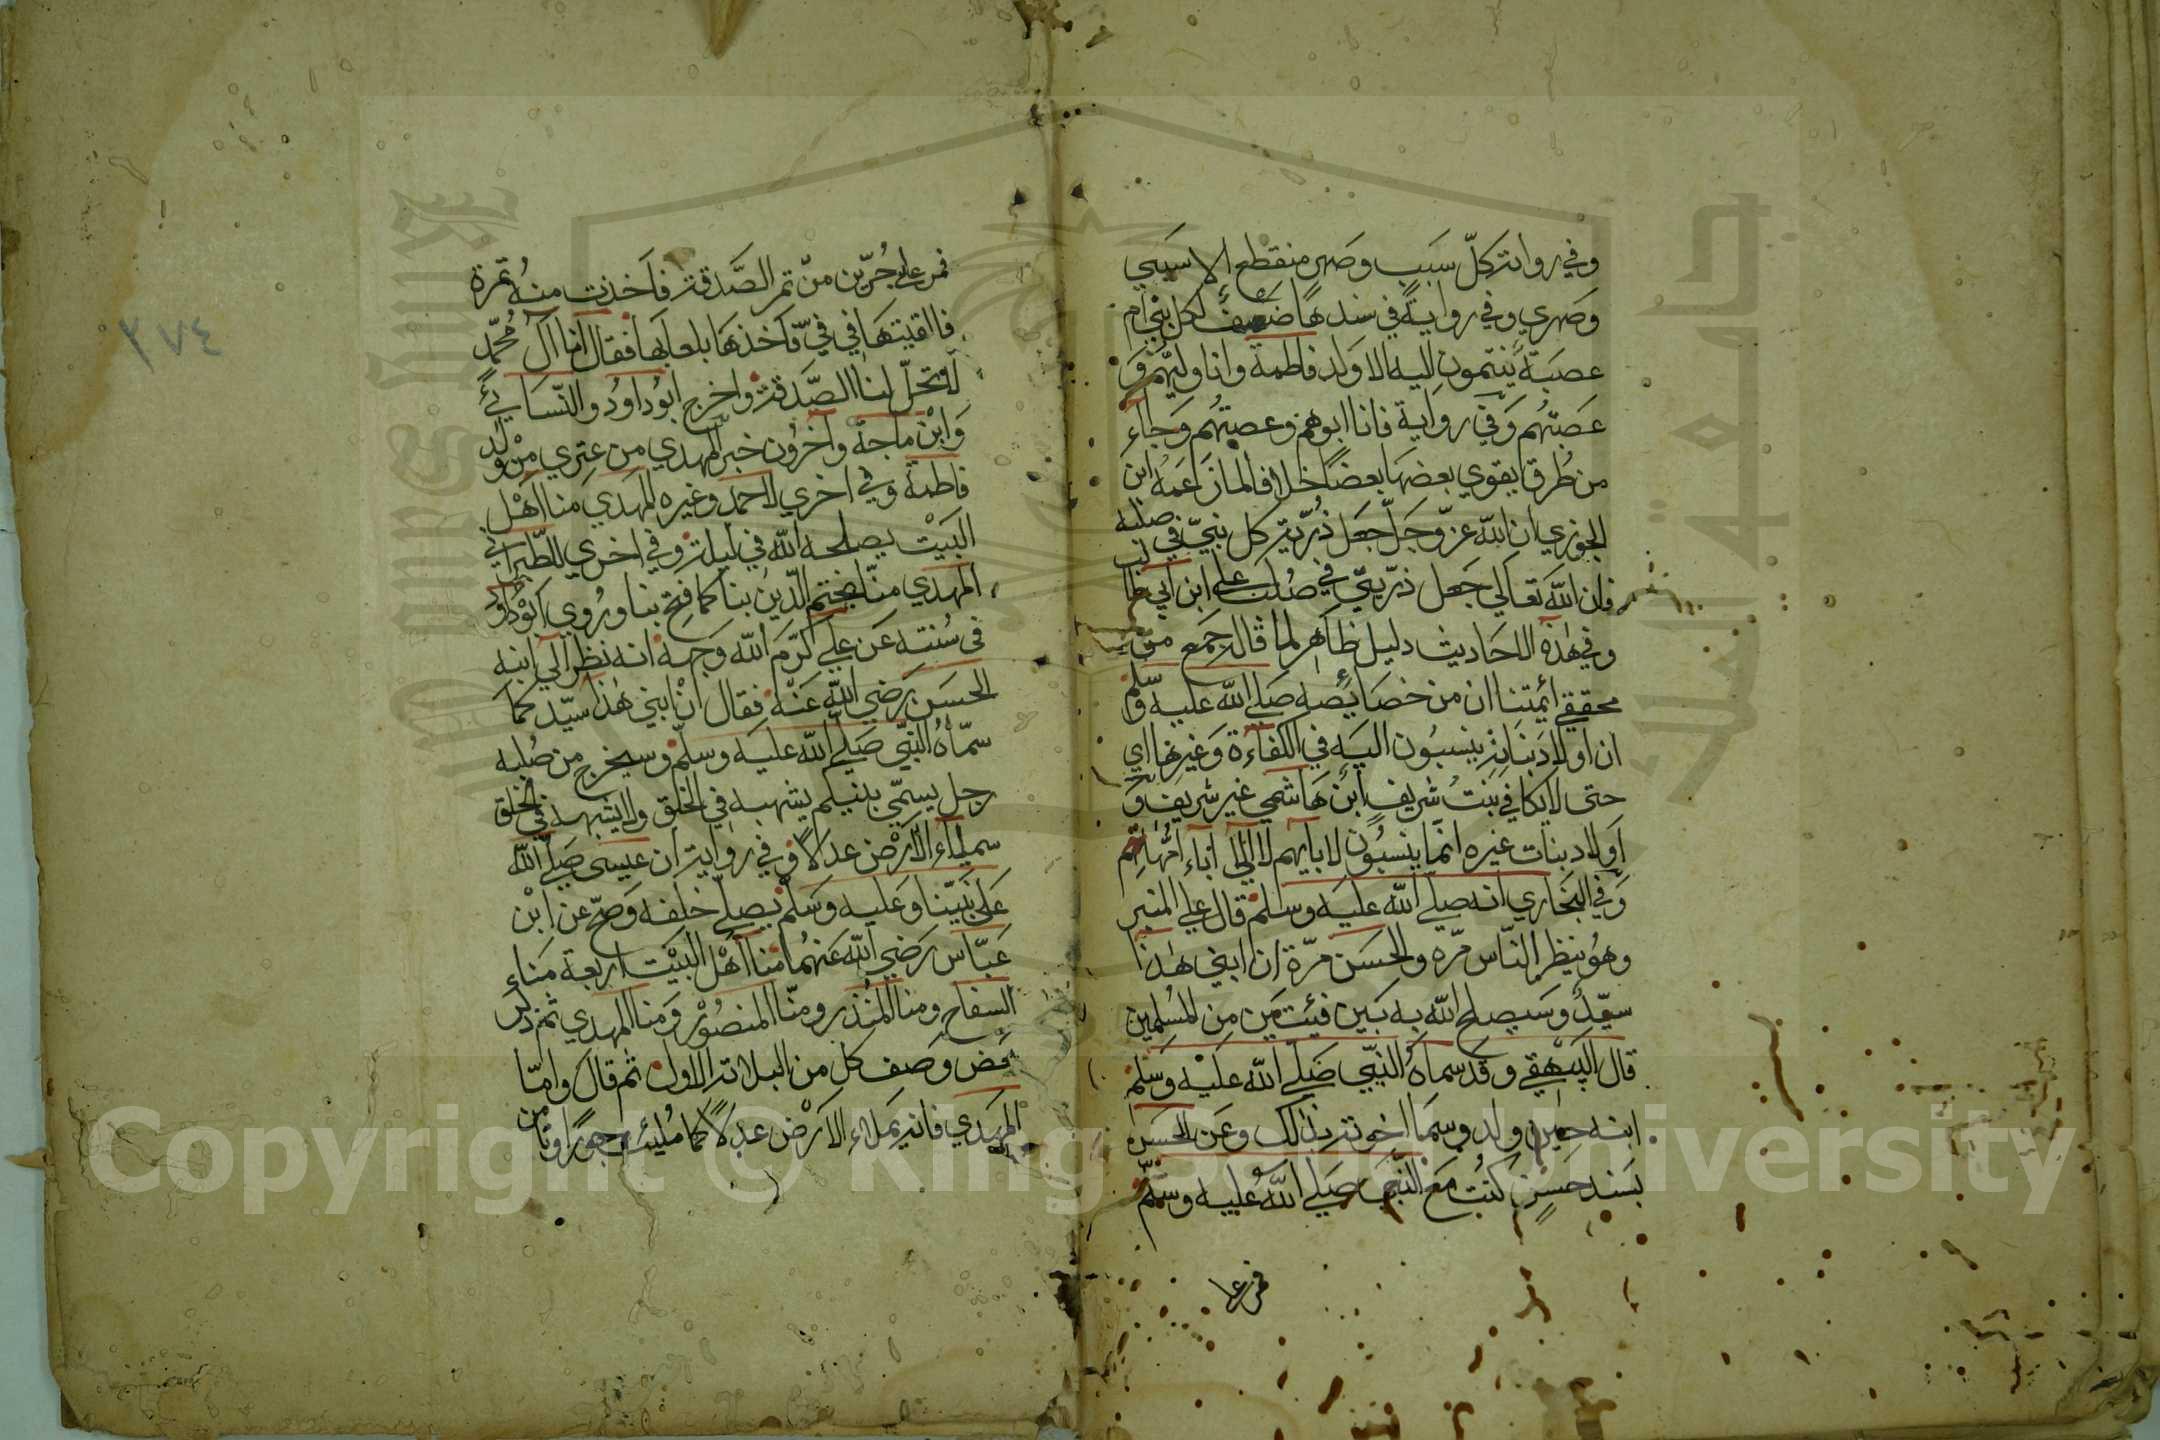 وفي رواية كلّ سَبَب وصَهر منقطع الا سَببي
وَصَهري وفي رواية في سندها ضعيف لكل بني ام
عصبَة ينتمون اليه الا ولد فاطمة وانا وليّهم وَ
عَصَبتُهم وَفي رواية فانا ابوهم وعصبتُهم وَجاءَ
من طُرق يقوي بعضهَا بعضًا خلافا لما زعمهُ ابن
الجوزي ان الله عزّ وجَلّ جعَل ذُرّية كل نبيّ في صلبه
فان اللّهَ تعالي جَعل ذرّيتي في صُلب علي ابن ابي طالب
وفي هٰذه الاحَاديث دليل ظاهر لما قاله جَمع من
محققي ائمتنا ان من خصَائصه صَلي الله عليه وسلم
ان اولاد بناته ينسبُون اليَه في الكفاءة وَغيرها اي
حتى لا يكافي بنتُ شريف ابن هَاشمي غير شريف وَ
اَولاد بنات غيره انمَا ينسبُون لابايهم لا الي اباء امُهاتهم
وَفي البخاري انه صلي الله عليَه وسلم قال علي المنبر
وهُو ينظر للنّاس مرّه وللحَسَن مرّة ان ابني هٰذا
سيّدٌ وسَيصلح الله به بَين فئيتَين مِن المُسلمين
قال البَيهقي وقد سماهُ النبّي صَلي الله عليْه وسَلم
ابنه حين ولد وسمَا اخوته بذلك وعَن الحسَن
بسَند حسَن كنتُ مَع النّبي صَلي اللّه عُليه وسلّم
فمر علي
فمر علي جُرّين من تمر الصَّدقة فاَخذت منه تمرة
فالقيتهَا في فيّ فاَخذهَا بلعابها فقال انا آل محُمّد
لا تحلّ لنا الصَّدقة واخرج ابُو داود والنّسَائي
وَابْن ماجة وآخرُون خبر المهدي من عترتي من ولد
فاطمة وفي اخري لاحمد وغيره المهَدي منا اهْل
البَيْت يصلحه الله في ليلة وفي اخري للطّبراني
المهدي منّا يختم الدّين بنا كما فتح بنا ورُوي ابُوداود
في سُننه عَن علي كرّمَ الله وَجهَه انه نظر الي ابنه
الحسَن رَضي اللّه عَنْه فقال انْ ابني هٰذا سيّد كما
سمّاهُ النبّي صَلي الله عليَه وسلّم وسيخرج من صُلبه
رجل يسمّي بنيكم يشبهه في الخلق ولا يشبهه في الخلق
سميلاء الاَرْض عدلاً وفي رواية ان عيسي صَلي الله
عَلي نَبيّنا وَعليه وسَلم يصلي خلفه وَصحّ عن ابْن
عَبّاس رَضي الله عَنهُما منا اهْل البَيْت اربعة منا
السفاح ومنا المنذر ومنّا المنصُوْر وَمنا المهدي ثم ذكر
بعَض وَصَف كل من الثلاثة الاول ثم قالَ وامّا
المهَدي فانه يَملاء الاَرْض عدَلاً كما مُلئت جورًا وتامن
٢٧٤
Copyright © King Saud University
جامعة الملك سعود